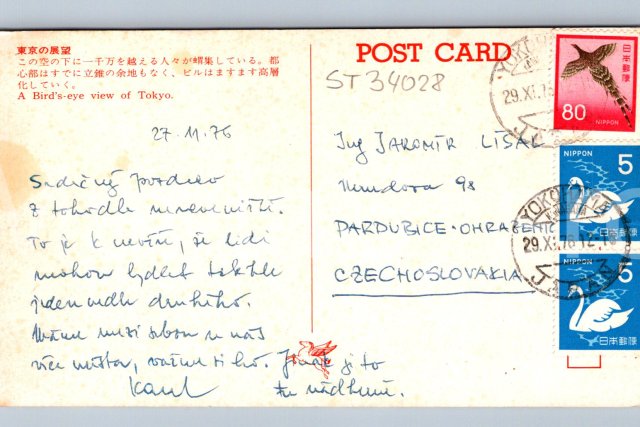 東京の展望
この空の下に一千万を越える人々が蝟集している。都
心部はすでに立錐の余地もなく、ビルはますます高層
化していく。
A Bird's-eye view of Tokyo.
POST CARD
ST 34028
27.11.76
Srdečný pozdrav
z tohodle
To je k nevíře, že lidi
mohou bydlet takhle
jeden vedle druhého.
Máme mezi sebou u nás
více místa, Jinak je to
tu nádherné.
Karel
Ing JAROMÍR LÍSAL
98
PARDUBICE-OHRAZENICE
CZECHOSLOVAKIA
YOKO
29.XI.76
JAPAN
80
NIPPON
日本郵便
NIPPON
5
日本郵便
YOKO
29.XI.76 12-18
JAPAN
5
日本郵便